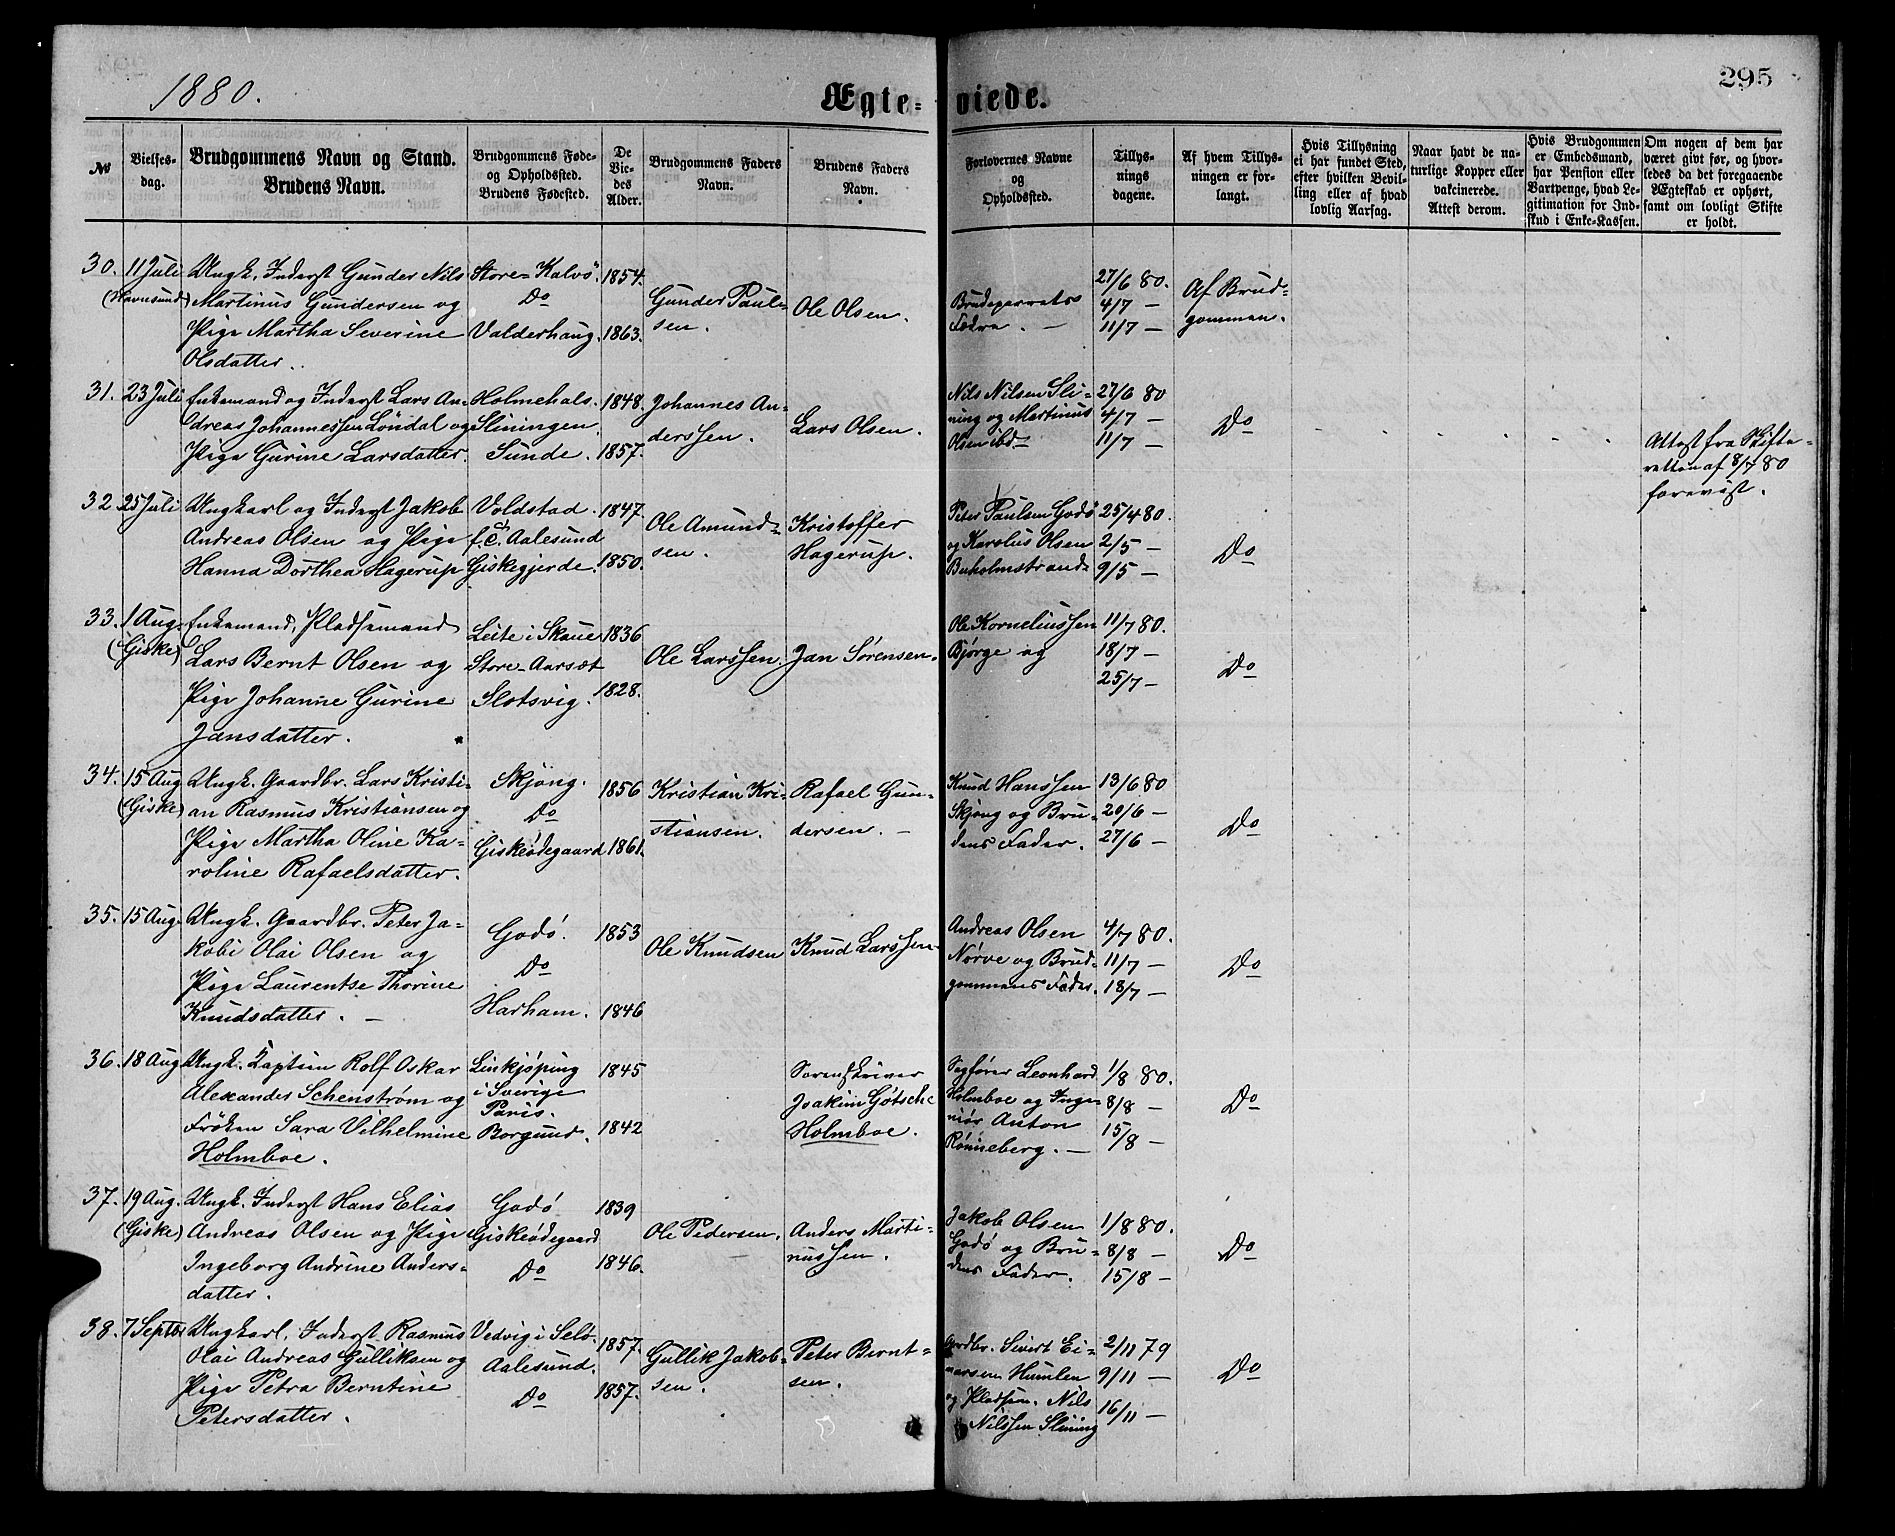 1880.
Ægte=
viede.
295
№
Vielses-
dag.
Brudgommens Navn og Stand.
Brudens Navn.
Brudgommens Føde-
og Opholdssted.
Brudens Fødested.
De
Vie-
des
Alder.
Brudgommens Faders
Navn.
Brudens Faders
Navn.
Forlovernes Navne
og
Opholdssted.
Tillys-
nings
dagene.
Af hvem Tillys-
ningen er for-
langt.
Hvis Tillysning
ei har fundet Sted,
efter hvilken Bevil-
ling eller af hvad
lovlig Aarsag.
Naar havt de na-
turlige Kopper eller
vakcinerede.
Attest derom.
Hvis Brudgommen
er Embedsmand,
har Pension eller
Vartpenge, hvad Le-
gitimation for Ind-
skud i Enke-Kassen.
Om nogen af dem har
været givt før, og hvor-
ledes da det foregaaende
Ægteskab er ophørt,
samt om lovligt Skifte
er holdt.
30.
11 Juli
(Havnsund)
Ungk. Inderst Gunder Nils
Martinus Gundersen og
Pige Martha Severine
Olsdatter.
Store-Kalvö.
Do
Valderhaug.
1854.
1863.
Gunder Paul-
sen.
Ole Olsen.
Brudeparrets
Fædre.
27/6 80.
4/7 —
11/7 —
Af Brud-
gommen.
31.
23 Juli
Enkemand og Inderst Lars An-
dreas Johannessen Løndal og
Pige Gurine Larsdatter.
Holmehals.
Sliningen.
Sunde.
1848.
1857.
Johannes An-
derssen.
Lars Olsen.
Nils Nilsen Sli-
ning og Martinus
Olsen ibd
27/6 80
4/7 —
11/7 —
Do
Attest fra Skifte-
retten af 8/7 80
forevist.
32.
25 Juli
Ungkarl og Inderst Jakob
Andreas Olsen og Pige
Hanna Dorthea Hagerup
Voldstad.
f. C. Aalesund
Giskegjerde.
1847.
1850.
Ole Amund-
sen.
Kristoffer
Hagerup.
Peter Paulsen Godö
og Karolus Olsen
Buholmstrand
25/4 80.
2/5 —
9/5 —
Do
33.
1 Aug.
(Giske)
Enkemand, Pladsemand
Lars Bernt Olsen og
Pige Johanne Gurine
Jansdatter.
Leite i Skaue
Store-Aarsæt
Slotsvig.
1836
1828.
Ole Larssen.
Jan Sørensen.
Ole Korneliussen
Bjørge og
11/7 80.
18/7 —
25/7 —
Do
34.
15 Aug
(Giske)
Ungk. Gaardbr. Lars Kristi-
an Rasmus Kristiansen og
Pige Martha Oline Ka-
roline Rafaelsdatter.
Skjong.
Do
Giskeødegaard
1856
1861.
Kristian Kri-
stiansen.
Rafael Gun-
dersen.
Knud Hanssen
Skjong og Bru-
dens Fader.
13/6 80
20/6 —
27/6 —
Do
35.
15 Aug.
Ungk. Gaardbr. Peter Ja-
kobi Olai Olsen og
Pige Laurentse Thorine
Knudsdatter.
Godö.
Do
Harham.
1853
1846
Ole Knudsen
Knud Larssen
Andreas Olsen
Nørve og Brud-
gommens Fader.
4/7 80.
11/7 —
18/7 —
Do
36.
18 Aug
Ungk. Kaptein Rolf Oskar
Alexander Schenstrøm og
Frøken Sara Vilhelmine
Holmboe.
Linkjøping
i Sverige
Paris.
Borgund.
1845
1842
Sorenskriver
Joakim Gotsche
Holmboe.
Sagfører Leonhard
Holmboe og Inge-
niør Anton
Rønneberg.
1/8 80.
8/8 —
15/8 —
Do
37.
19 Aug.
(Giske)
Ungk. Inderst Hans Elias
Andreas Olsen og Pige
Ingeborg Andrine Anders-
datter.
Godö
Giskeødegaard
Do
1839
1846.
Ole Pedersen.
Anders Marti-
nussen.
Jakob Olsen
Godö og Bru-
dens Fader.
1/8 80.
8/8 —
15/8 —
Do
38.
7 Septbr
Ungkarl, Inderst Rasmus
Olai Andreas Gulliksen og
Pige Petra Berntine
Petersdatter.
Vedvig i Selö.
Aalesund.
Do
1857.
1857.
Gullik Jakob-
sen.
Peter Bernt-
sen.
Gardbr. Sivert Ei-
narsen Humlen
og Pladsm. Nils
Nilssen Slining
2/11 79
9/11 —
16/11 —
Do